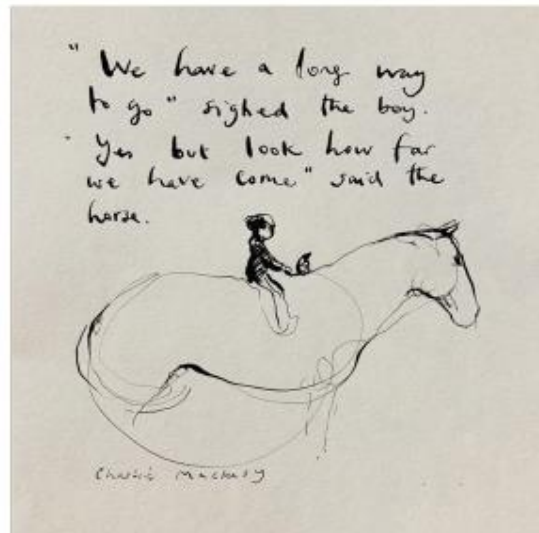 " We have a long way
to go " sighed the boy.
" Yes but look how far
we have come " said the
horse.
Charlie Mackesy